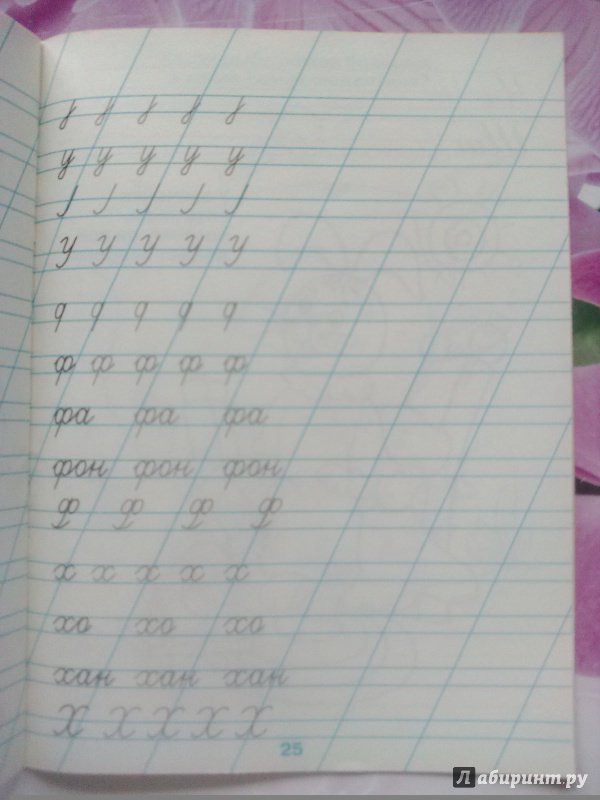 у у у у у
У У У У У
ф ф ф ф ф
фа фа фа
фон фон фон
Ф Ф Ф Ф
х х х х х
хо хо хо
хан хан хан
Х Х Х Х Х
25
Лабиринт.ру